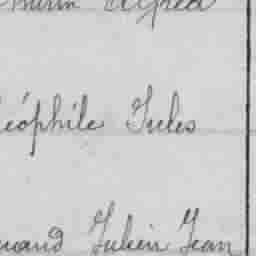 Alfred
éophile Jules
mand Julien Jean